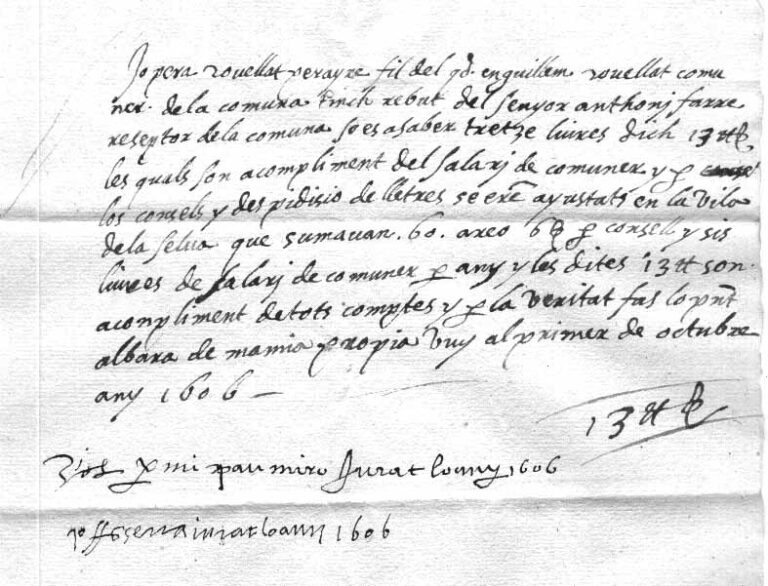 Jo pera rouellat perayre fil del qd. en guillem rouellat comu
ner. de la comuna tinch rebut del senyor anthonj farre
reseptor de la comuna so es a saber tretze liures dich 13 ll
les quals son a compliment del salarj de comuner y p
los consells y des pidisio de lletres se ere ajustats en la vila
de la selua que sumauan .60. a reo 6 p consell y sis
liures de salarj de comuner p any y les dites 13 ll son
a conpliment de tots comptes y p la veritat fas lo pnt
albara de ma mia propia vuy al primer de octubre
any 1606
13 ll
p mi pau miro Jurat lo any 1606
serra iurat lo any 1606